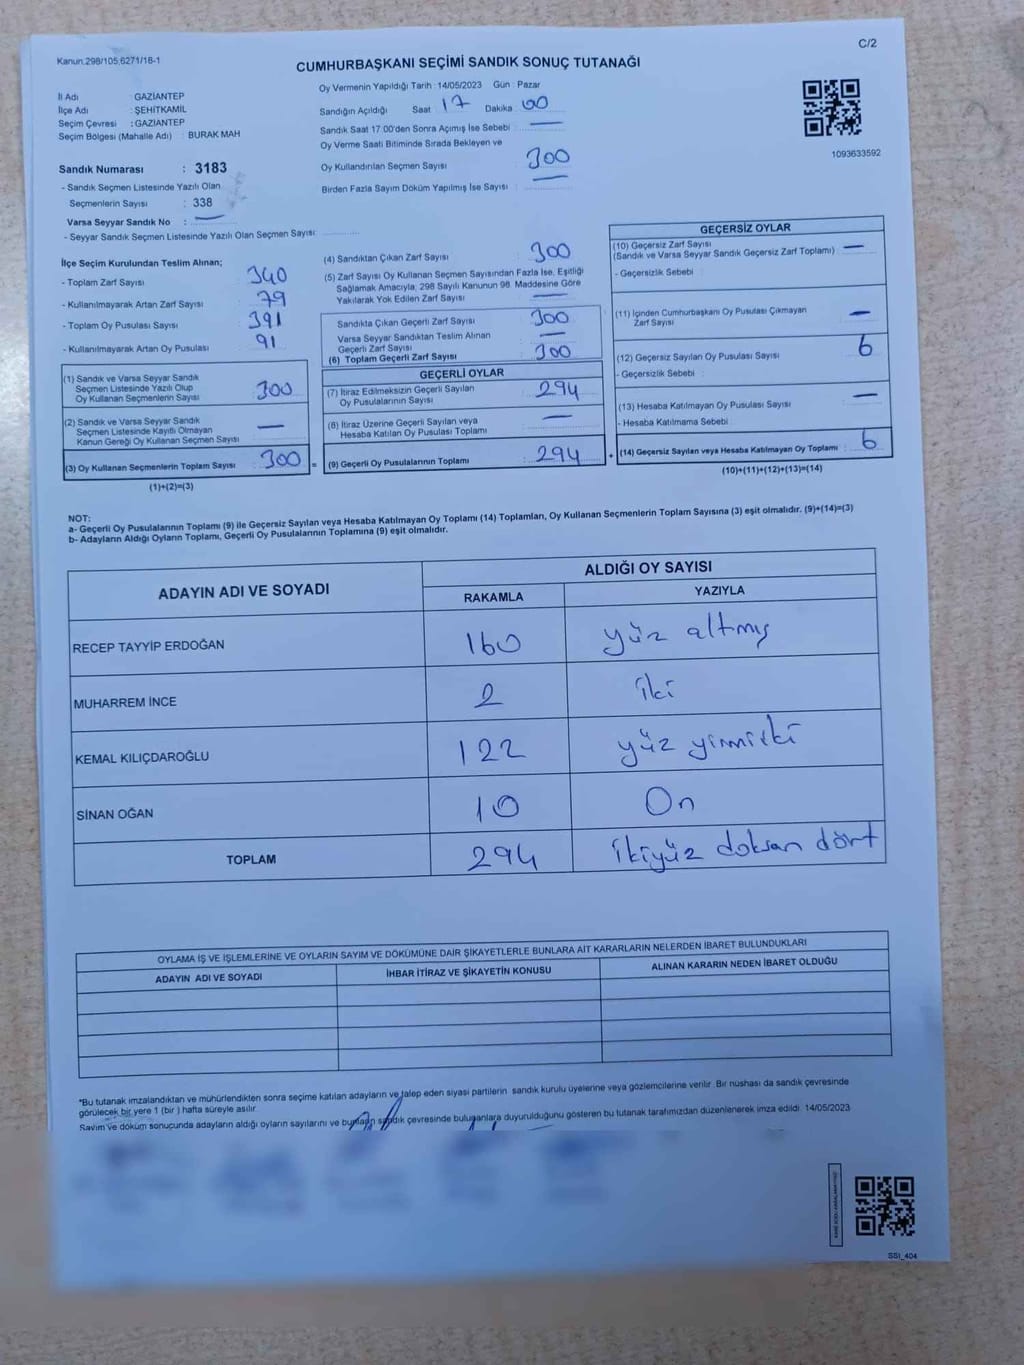 C/2
Kanun:298/105,6271/18-1
CUMHURBAŞKANI SEÇİMİ SANDIK SONUÇ TUTANAĞI
İl Adı GAZİANTEP
İlçe Adı : ŞEHİTKAMİL
Seçim Çevresi : GAZİANTEP
Seçim Bölgesi (Mahalle Adı) : BURAK MAH
Oy Vermenin Yapıldığı Tarih : 14/05/2023 Gün : Pazar
Sandığın Açıldığı Saat 17 Dakika 00
Sandık Saat 17.00'den Sonra Açımış İse Sebebi : —
Oy Verme Saati Bitiminde Sırada Bekleyen ve
Oy Kullandırılan Seçmen Sayısı 300
Birden Fazla Sayım Döküm Yapılmış İse Sayısı : —
1093633592
Sandık Numarası : 3183
- Sandık Seçmen Listesinde Yazılı Olan
Seçmenlerin Sayısı : 338
Varsa Seyyar Sandık No : —
- Seyyar Sandık Seçmen Listesinde Yazılı Olan Seçmen Sayısı:
İlçe Seçim Kurulundan Teslim Alınan;
- Toplam Zarf Sayısı : 340
- Kullanılmayarak Artan Zarf Sayısı : 79
- Toplam Oy Pusulası Sayısı : 391
- Kullanılmayarak Artan Oy Pusulası : 91
(1) Sandık ve Varsa Seyyar Sandık
Seçmen Listesinde Yazılı Olup
Oy Kullanan Seçmenlerin Sayısı 300
(2) Sandık ve Varsa Seyyar Sandık
Seçmen Listesinde Kayıtlı Olmayan
Kanun Gereği Oy Kullanan Seçmen Sayısı —
(3) Oy Kullanan Seçmenlerin Toplam Sayısı 300 =
(1)+(2)=(3)
(4) Sandıktan Çıkan Zarf Sayısı 300
(5) Zarf Sayısı Oy Kullanan Seçmen Sayısından Fazla İse, Eşitliği
Sağlamak Amacıyla; 298 Sayılı Kanunun 98. Maddesine Göre
Yakılarak Yok Edilen Zarf Sayısı —
Sandıkta Çıkan Geçerli Zarf Sayısı 300
Varsa Seyyar Sandıktan Teslim Alınan
Geçerli Zarf Sayısı —
(6) Toplam Geçerli Zarf Sayısı : 300
GEÇERLİ OYLAR
(7) İtiraz Edilmeksizin Geçerli Sayılan
Oy Pusulalarının Sayısı 294
(8) İtiraz Üzerine Geçerli Sayılan veya
Hesaba Katılan Oy Pusulası Toplamı —
(9) Geçerli Oy Pusulalarının Toplamı : 294 +
GEÇERSİZ OYLAR
(10) Geçersiz Zarf Sayısı
(Sandık ve Varsa Seyyar Sandık Geçersiz Zarf Toplamı) : —
- Geçersizlik Sebebi
(11) İçinden Cumhurbaşkanı Oy Pusulası Çıkmayan
Zarf Sayısı —
(12) Geçersiz Sayılan Oy Pusulası Sayısı : 6
- Geçersizlik Sebebi :
(13) Hesaba Katılmayan Oy Pusulası Sayısı : —
- Hesaba Katılmama Sebebi :
(14) Geçersiz Sayılan veya Hesaba Katılmayan Oy Toplamı : 6
(10)+(11)+(12)+(13)=(14)
NOT:
a- Geçerli Oy Pusulalarının Toplamı (9) ile Geçersiz Sayılan veya Hesaba Katılmayan Oy Toplamı (14) Toplamları, Oy Kullanan Seçmenlerin Toplam Sayısına (3) eşit olmalıdır. (9)+(14)=(3)
b- Adayların Aldığı Oyların Toplamı, Geçerli Oy Pusulalarının Toplamına (9) eşit olmalıdır.
ADAYIN ADI VE SOYADI ALDIĞI OY SAYISI
RAKAMLA YAZIYLA
RECEP TAYYİP ERDOĞAN 160 yüz altmış
MUHARREM İNCE 2 iki
KEMAL KILIÇDAROĞLU 122 yüz yirmiiki
SİNAN OĞAN 10 On
TOPLAM 294 ikiyüz doksan dört
OYLAMA İŞ VE İŞLEMLERİNE VE OYLARIN SAYIM VE DÖKÜMÜNE DAİR ŞİKAYETLERLE BUNLARA AİT KARARLARIN NELERDEN İBARET BULUNDUKLARI
ADAYIN ADI VE SOYADI İHBAR İTİRAZ VE ŞİKAYETİN KONUSU ALINAN KARARIN NEDEN İBARET OLDUĞU
*Bu tutanak imzalandıktan ve mühürlendikten sonra seçime katılan adayların ve talep eden siyasi partilerin sandık kurulu üyelerine veya gözlemcilerine verilir. Bir nüshası da sandık çevresinde
görülecek bir yere 1 (bir ) hafta süreyle asılır.
Sayım ve döküm sonucunda adayların aldığı oyların sayılarını ve bunların sandık çevresinde bulunanlara duyurulduğunu gösteren bu tutanak tarafımızdan düzenlenerek imza edildi. 14/05/2023
SSI_404